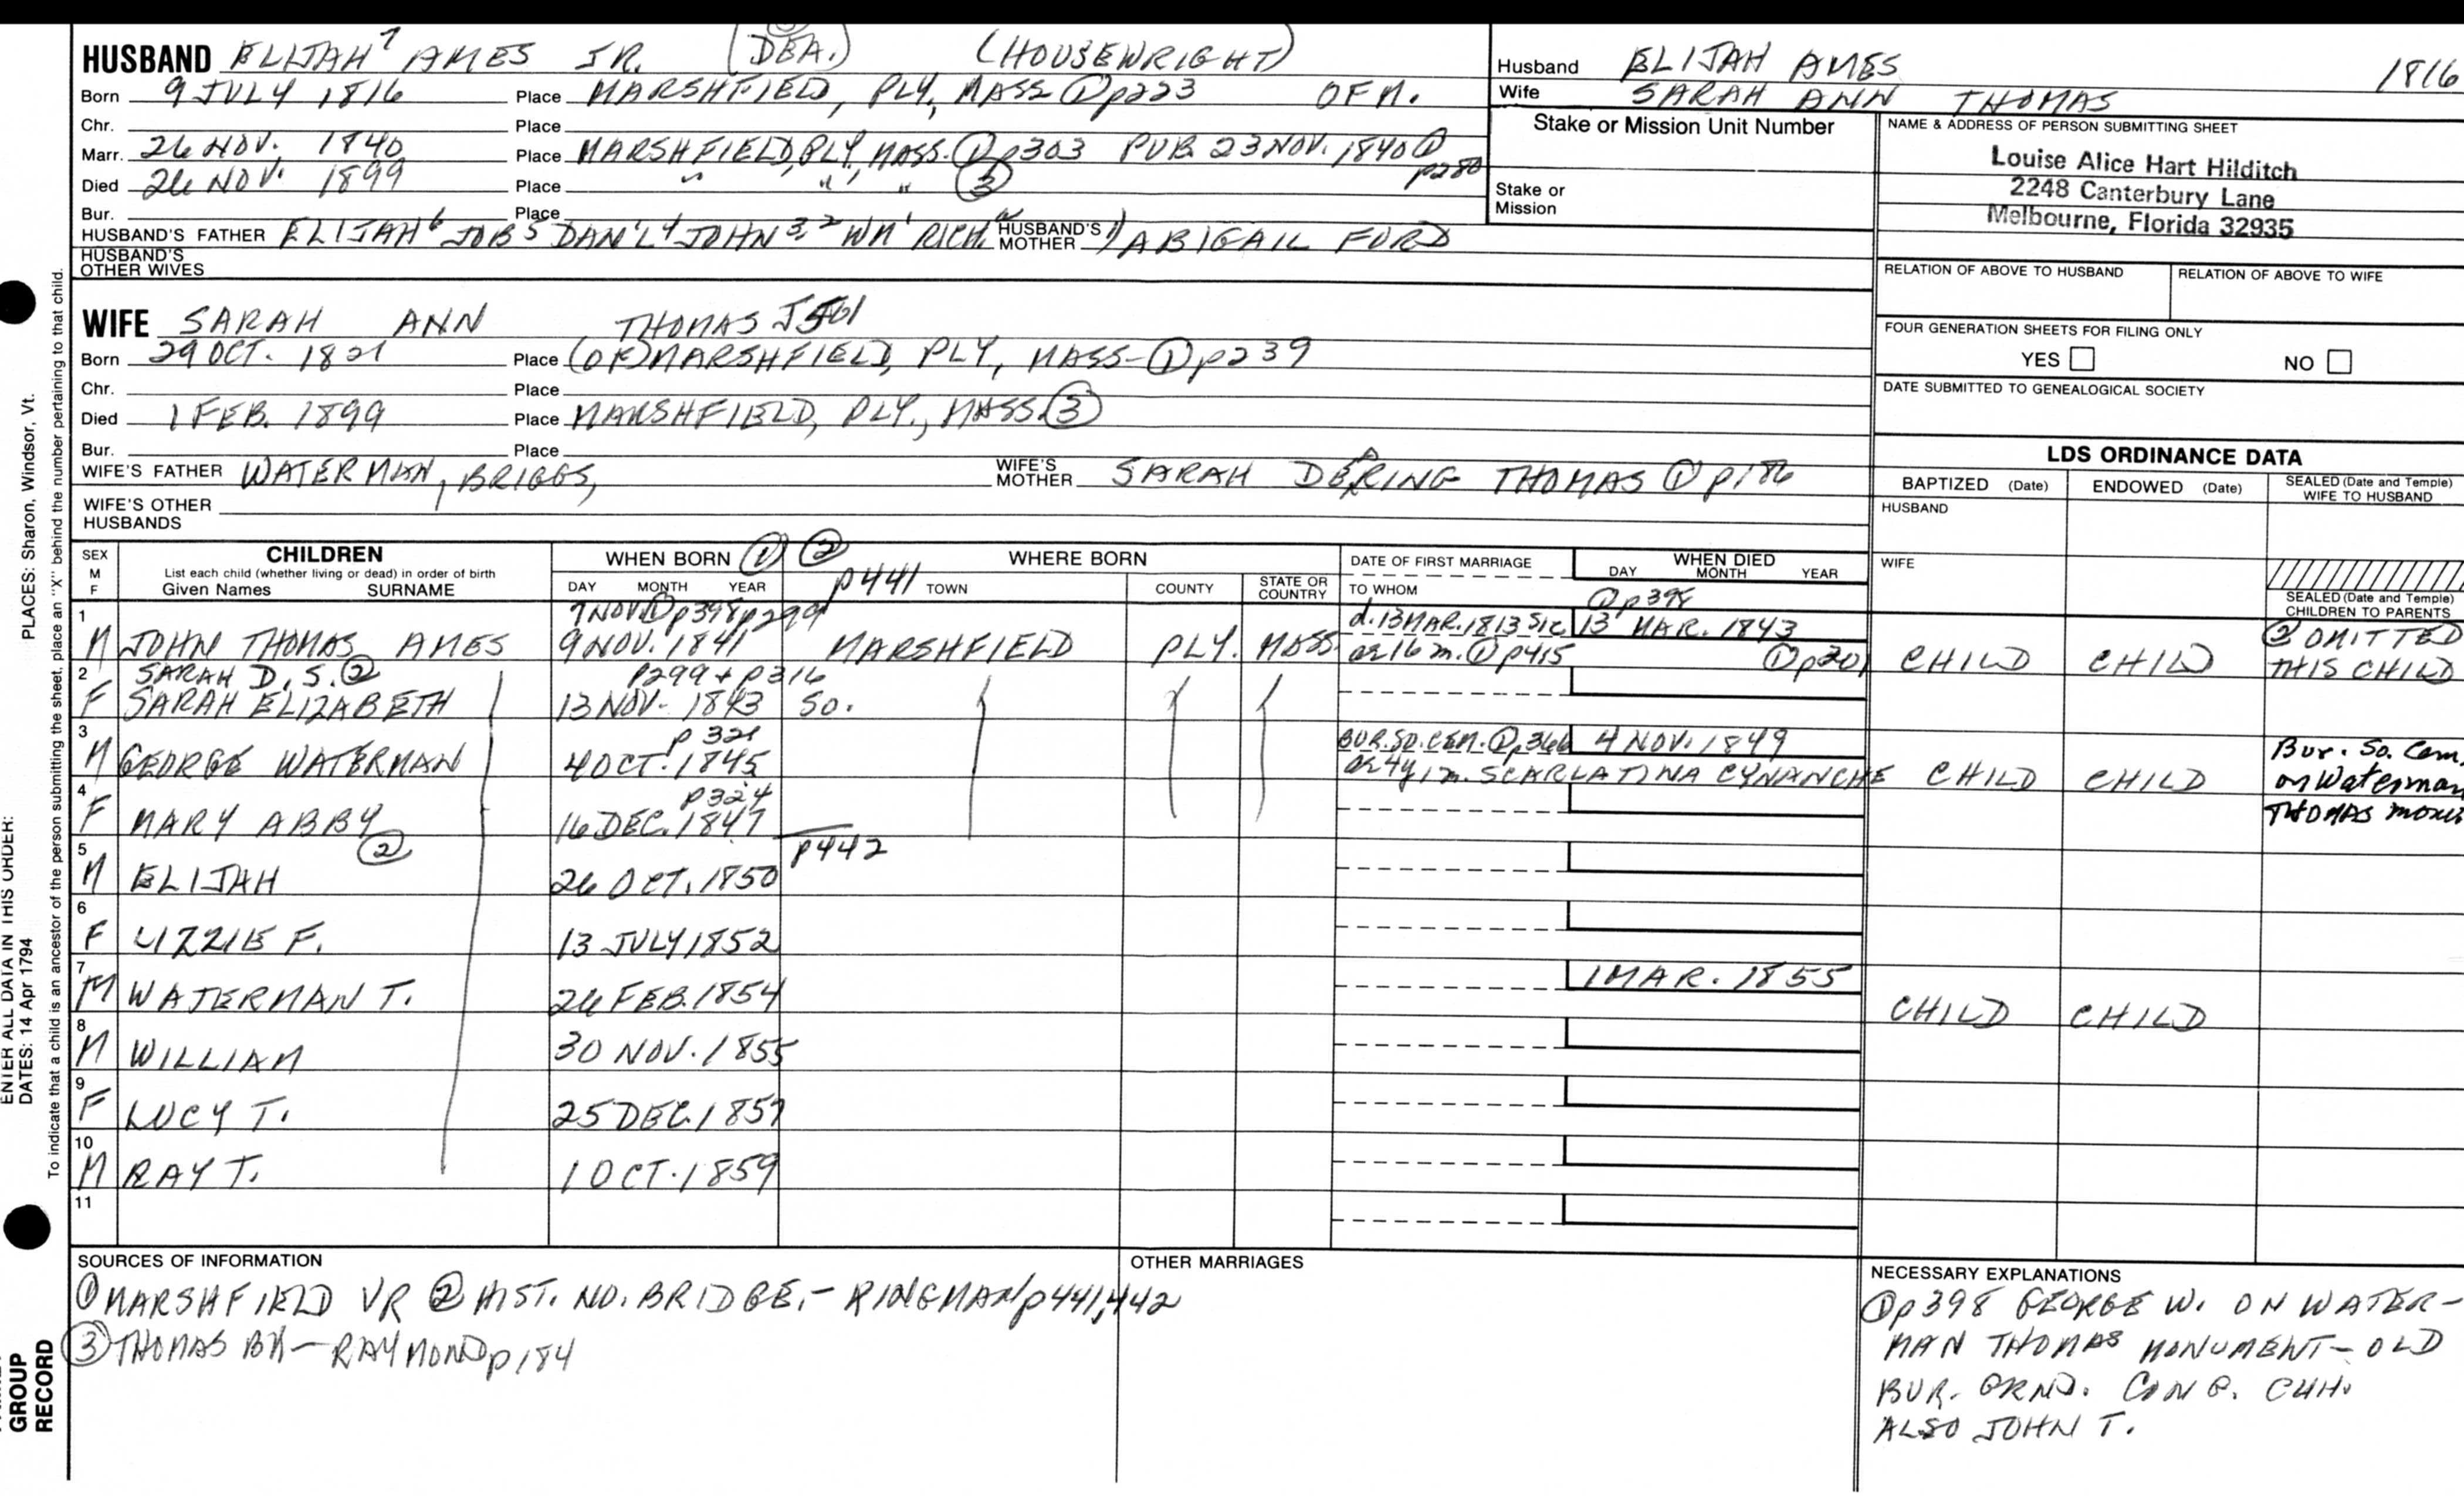 HUSBAND ELIJAH⁷ AMES JR. (DEA.) (HOUSEWRIGHT)
Born 9 JULY 1816 Place MARSHFIELD, PLY, MASS ① p223 OF M.
Chr. Place
Marr. 26 NOV. 1840 Place MARSHFIELD, PLY, MASS. ① p303 PUB. 23 NOV. 1840 ① p280
Died 26 NOV. 1899 Place " " " ③
Bur. Place
HUSBAND'S FATHER ELIJAH⁶ JOB⁵ DAN'L⁴ JOHN³,² WM¹ RICH. HUSBAND'S MOTHER ABIGAIL FORD
HUSBAND'S OTHER WIVES
Husband ELIJAH AMES 1816
Wife SARAH ANN THOMAS
Stake or Mission Unit Number
Stake or Mission
NAME & ADDRESS OF PERSON SUBMITTING SHEET
Louise Alice Hart Hilditch
2248 Canterbury Lane
Melbourne, Florida 32935
RELATION OF ABOVE TO HUSBAND RELATION OF ABOVE TO WIFE
FOUR GENERATION SHEETS FOR FILING ONLY
YES NO
DATE SUBMITTED TO GENEALOGICAL SOCIETY
WIFE SARAH ANN THOMAS
Born 29 OCT. 1821 Place (OF) MARSHFIELD, PLY, MASS- ① p239
Chr. Place
Died 1 FEB. 1899 Place MARSHFIELD, PLY., MASS. ③
Bur. Place
WIFE'S FATHER WATERMAN, BRIGGS, WIFE'S MOTHER SARAH DEERING THOMAS ① p186
WIFE'S OTHER HUSBANDS
LDS ORDINANCE DATA
BAPTIZED (Date) ENDOWED (Date) SEALED (Date and Temple) WIFE TO HUSBAND
HUSBAND
WIFE
SEALED (Date and Temple) CHILDREN TO PARENTS
SEX M F CHILDREN List each child (whether living or dead) in order of birth Given Names SURNAME
WHEN BORN ① ② DAY MONTH YEAR
WHERE BORN p441 TOWN COUNTY STATE OR COUNTRY
DATE OF FIRST MARRIAGE TO WHOM
WHEN DIED DAY MONTH YEAR
7 NOV ① p398 p299 d. 13 MAR. 1813 SIC ① p398
1 M JOHN THOMAS AMES 9 NOV. 1841 MARSHFIELD PLY. MASS. ae 16 m. ① p415 13 MAR. 1843 ① p201 CHILD CHILD ② OMITTED THIS CHILD
SARAH D. S. ② p299 + p316
2 F SARAH ELIZABETH 13 NOV. 1843 SO.
p 321 BUR. SO. CEM. ① p366 4 NOV. 1849
3 M GEORGE WATERMAN 4 OCT. 1845 ae 4y 1m. SCARLATINA CYNANCHE CHILD CHILD Bur. So. Cem. on Waterman THOMAS
p324
4 F MARY ABBY 16 DEC. 1847
② p442
5 M ELIJAH 26 OCT. 1850
6 F LIZZIE F. 13 JULY 1852
7 M WATERMAN T. 26 FEB. 1854 1 MAR. 1855 CHILD CHILD
8 M WILLIAM 30 NOV. 1855
9 F LUCY T. 25 DEC. 1857
10 M RAY T. 1 OCT. 1859
11
SOURCES OF INFORMATION
① MARSHFIELD VR ② HIST. NO. BRIDGE.- KINGMAN p441,442
③ THOMAS BK - RAYMOND p184
OTHER MARRIAGES
NECESSARY EXPLANATIONS
① p398 GEORGE W. ON WATER-
MAN THOMAS MONUMENT - OLD
BUR. GRND. CONG. CHH.
ALSO JOHN T.
ENTER ALL DATA IN THIS ORDER:
DATES: 14 Apr 1794 PLACES: Sharon, Windsor, Vt.
To indicate that a child is an ancestor of the person submitting the sheet, place an "X" behind the number pertaining to that child.
GROUP
RECORD